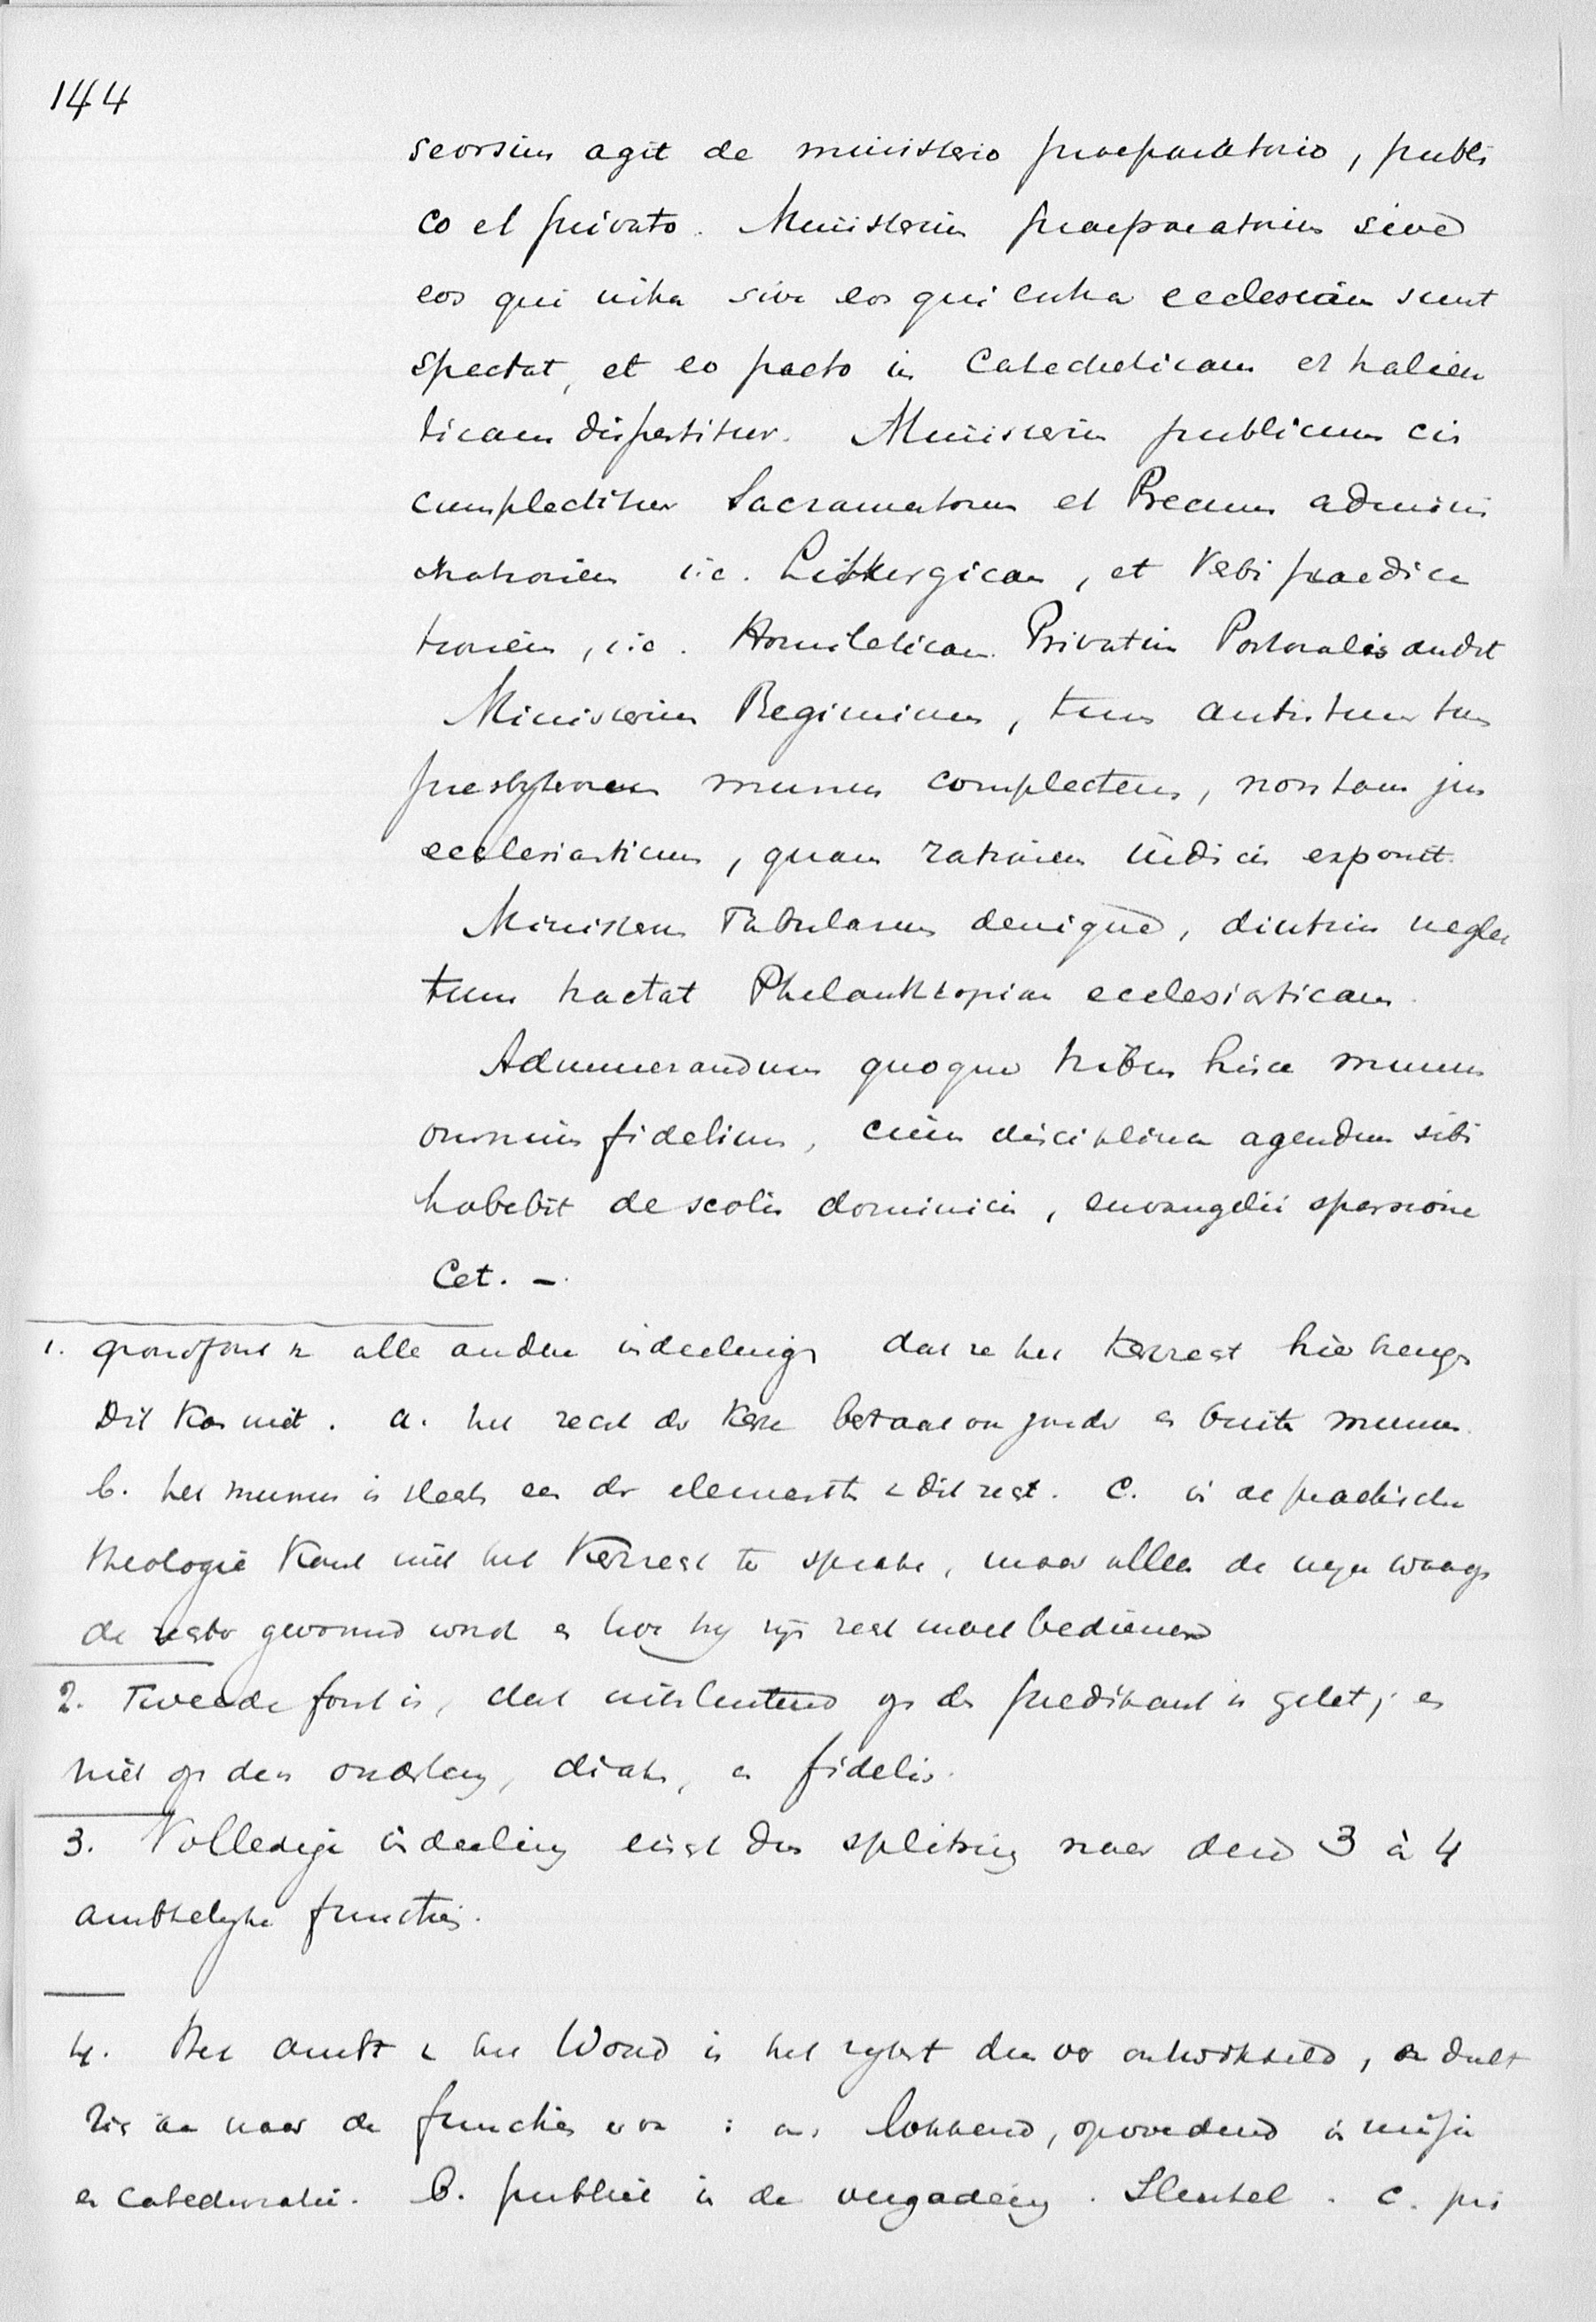 144
seorsim agit de ministerio praeparatorio, publi
co et privato. Ministerium praeparatorium sive
eos qui intra sive eos qui extra ecclesiam sunt
spectat, et eo pacto in Catecheticam et halieu
ticam dispertitur. Ministerium publicum cir
cumplectitur Sacramentorum et Precum admini
strationem i.e. Liturgicam, et Verbi praedica
tionem, i.e. Homileticam. Privatim Pastoralis audit
Ministerium Regiminum, tum antistitum tum
presbyterorum munus complectens, non tam jus
ecclesiasticum, quam rationem iudicii exponit.
Ministerium Tabularum denique, diutius neglec
tum tractat Philanthropiam ecclesiasticam.
Adnumerandum quoque tribus hisce munus
omnium fidelium, cuius disciplina agendum sibi
habebit de scolis dominicis, euvangelii sparsione
Cet. -.
1. grondfout v alle andere indeelingen dat ze het Kerregt hier brengen
Dit Kan niet. a. het recht der Kerk bestaat on en buiten munus.
b. het munus is slechts een der elementen v dit regt. C. in de practische
theologie Komt niet het Kerregt te sprake, maar alleen de wijze waarop
de gevormd word en hoe hij zijn recht moet bedienen
2. Tweede fout is, dat uitsluitend op den predikant is gelet, en
niet op den ouderling, diaken, en fidelis.
3. Volledige indeeling eischt dus splitsing naar deze 3 à 4
ambtelijke functies.
4. Het ambt v het Woord is het rijkst den ontwikkeld, en deelt
zich in naar de functies van : a. lokkend, opvoedend in missie
en Catechisatie. B. publiek in de vergadering. Sleutel. c. pri